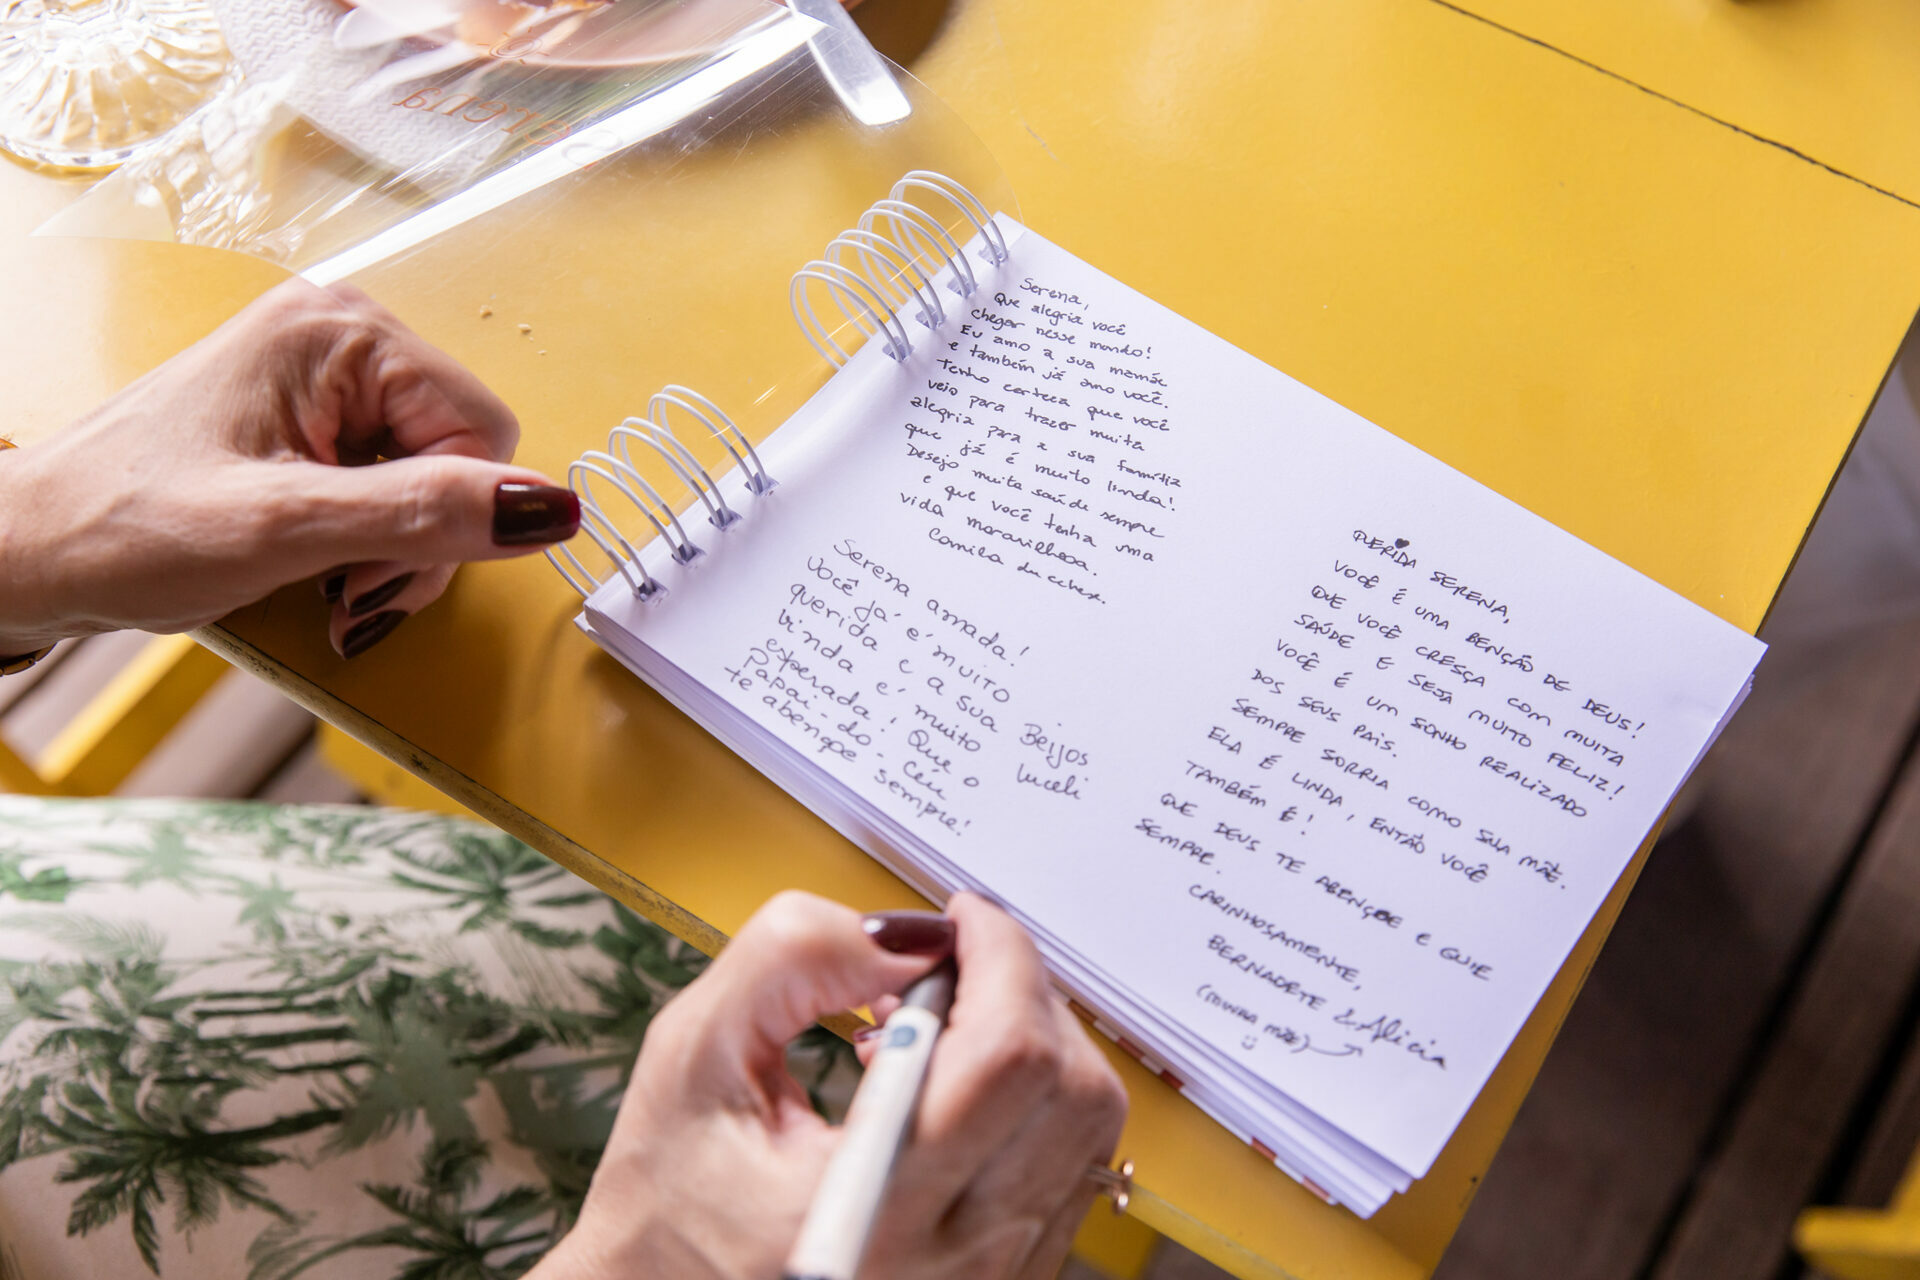 Serena,
Que alegria você
chegar nesse mundo!
Eu amo a sua mamãe
e também já amo você.
Tenho certeza que você
veio para trazer muita
alegria para a sua família
que já é muito linda!
Desejo muita saúde sempre
e que você tenha uma
vida maravilhosa.
Camila
Serena amada!
Você já é muito
querida e a sua
vinda é muito
esperada! Que o
Papai-do-Céu
te abençoe sempre!
Beijos
Luceli
QUERIDA SERENA,
VOCÊ É UMA BENÇÃO DE DEUS!
QUE VOCÊ CRESÇA COM MUITA
SAÚDE E SEJA MUITO FELIZ!
VOCÊ É UM SONHO REALIZADO
DOS SEUS PAIS.
SEMPRE SORRIA COMO SUA MÃE.
ELA É LINDA, ENTÃO VOCÊ
TAMBÉM É!
QUE DEUS TE ABENÇOE E GUIE
SEMPRE.
CARINHOSAMENTE,
BERNADETE & Alicia
(MINHA MÃE)